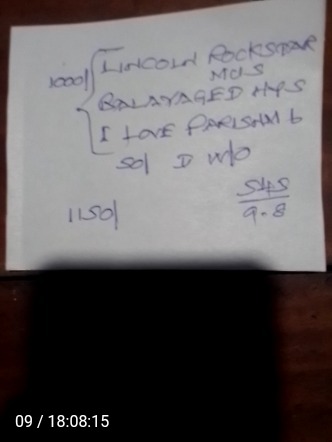 1000/ LINCOLN ROCKSTAR
MUS
BALAYAGED HPS
I LOVE PARISHM 6
50/ D W/O
1150/
545
9-8
09 / 18:08:15